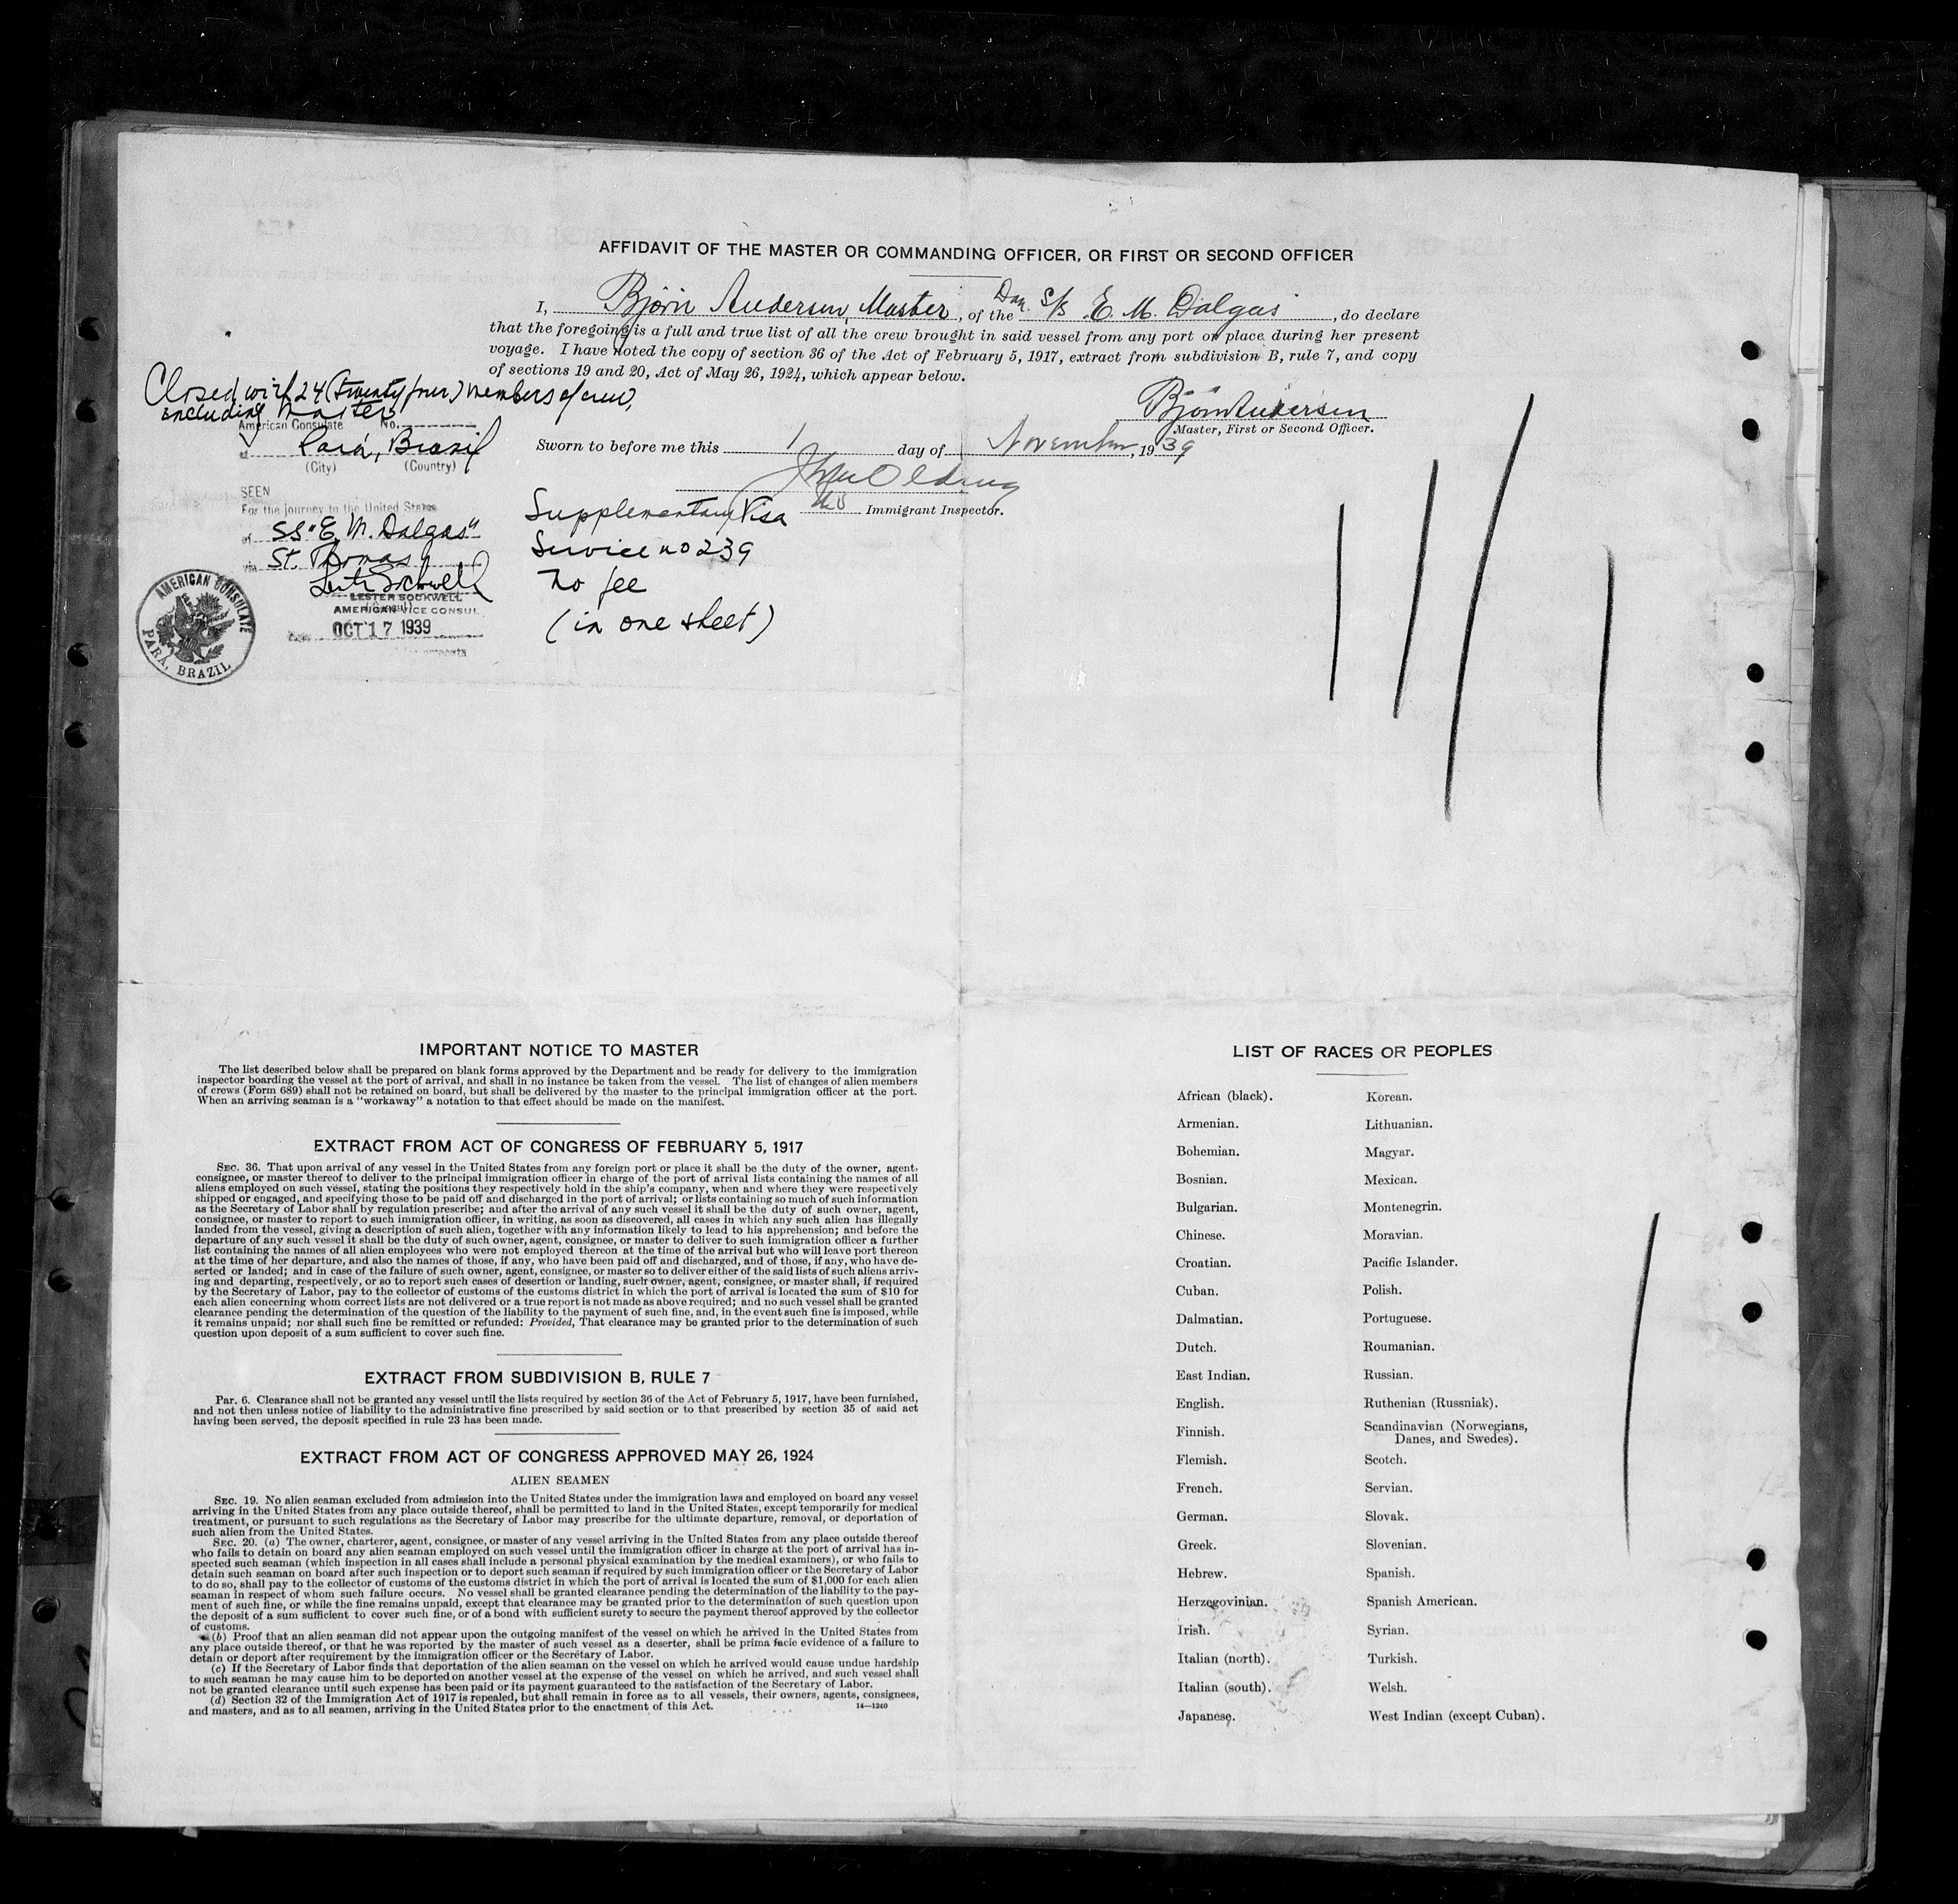 AFFIDAVIT OF THE MASTER OR COMMANDING OFFICER, OR FIRST OR SECOND OFFICER
I, Bjørn Andersen, Master, of the Dan. S/S E. M. Dalgas, do declare
that the foregoing is a full and true list of all the crew brought in said vessel from any port or place during her present
voyage. I have noted the copy of section 36 of the Act of February 5, 1917, extract from subdivision B, rule 7, and copy
of sections 19 and 20, Act of May 26, 1924, which appear below.
Closed with 24 (twenty four) members of crew,
including Master
Bjørn Andersen
Master, First or Second Officer.
American Consulate No.
at Pará, Brazil
(City) (Country)
Sworn to before me this 1 day of November, 1939
Immigrant Inspector.
SEEN
For the journey to the United States
of SS "E. M. Dalgas"
via St. Thomas
LESTER SOCKWELL
AMERICAN VICE CONSUL
OCT 17 1939
AMERICAN CONSULATE
PARÁ, BRAZIL
Supplementary Visa
Service no 239
No fee
(in one sheet)
IMPORTANT NOTICE TO MASTER
The list described below shall be prepared on blank forms approved by the Department and be ready for delivery to the immigration
inspector boarding the vessel at the port of arrival, and shall in no instance be taken from the vessel. The list of changes of alien members
of crews (Form 689) shall not be retained on board, but shall be delivered by the master to the principal immigration officer at the port.
When an arriving seaman is a "workaway" a notation to that effect should be made on the manifest.
EXTRACT FROM ACT OF CONGRESS OF FEBRUARY 5, 1917
SEC. 36. That upon arrival of any vessel in the United States from any foreign port or place it shall be the duty of the owner, agent,
consignee, or master thereof to deliver to the principal immigration officer in charge of the port of arrival lists containing the names of all
aliens employed on such vessel, stating the positions they respectively hold in the ship's company, when and where they were respectively
shipped or engaged, and specifying those to be paid off and discharged in the port of arrival; or lists containing so much of such information
as the Secretary of Labor shall by regulation prescribe; and after the arrival of any such vessel it shall be the duty of such owner, agent,
consignee, or master to report to such immigration officer, in writing, as soon as discovered, all cases in which any such alien has illegally
landed from the vessel, giving a description of such alien, together with any information likely to lead to his apprehension; and before the
departure of any such vessel it shall be the duty of such owner, agent, consignee, or master to deliver to such immigration officer a further
list containing the names of all alien employees who were not employed thereon at the time of the arrival but who will leave port thereon
at the time of her departure, and also the names of those, if any, who have been paid off and discharged, and of those, if any, who have de-
serted or landed; and in case of the failure of such owner, agent, consignee, or master so to deliver either of the said lists of such aliens arriv-
ing and departing, respectively, or so to report such cases of desertion or landing, such owner, agent, consignee, or master shall, if required
by the Secretary of Labor, pay to the collector of customs of the customs district in which the port of arrival is located the sum of $10 for
each alien concerning whom correct lists are not delivered or a true report is not made as above required; and no such vessel shall be granted
clearance pending the determination of the question of the liability to the payment of such fine, and, in the event such fine is imposed, while
it remains unpaid; nor shall such fine be remitted or refunded: Provided, That clearance may be granted prior to the determination of such
question upon deposit of a sum sufficient to cover such fine.
EXTRACT FROM SUBDIVISION B, RULE 7
Par. 6. Clearance shall not be granted any vessel until the lists required by section 36 of the Act of February 5, 1917, have been furnished,
and not then unless notice of liability to the administrative fine prescribed by said section or to that prescribed by section 35 of said act
having been served, the deposit specified in rule 23 has been made.
EXTRACT FROM ACT OF CONGRESS APPROVED MAY 26, 1924
ALIEN SEAMEN
SEC. 19. No alien seaman excluded from admission into the United States under the immigration laws and employed on board any vessel
arriving in the United States from any place outside thereof, shall be permitted to land in the United States, except temporarily for medical
treatment, or pursuant to such regulations as the Secretary of Labor may prescribe for the ultimate departure, removal, or deportation of
such alien from the United States.
SEC. 20. (a) The owner, charterer, agent, consignee, or master of any vessel arriving in the United States from any place outside thereof
who fails to detain on board any alien seaman employed on such vessel until the immigration officer in charge at the port of arrival has in-
spected such seaman (which inspection in all cases shall include a personal physical examination by the medical examiners), or who fails to
detain such seaman on board after such inspection or to deport such seaman if required by such immigration officer or the Secretary of Labor
to do so, shall pay to the collector of customs of the customs district in which the port of arrival is located the sum of $1,000 for each alien
seaman in respect of whom such failure occurs. No vessel shall be granted clearance pending the determination of the liability to the pay-
ment of such fine, or while the fine remains unpaid, except that clearance may be granted prior to the determination of such question upon
the deposit of a sum sufficient to cover such fine, or of a bond with sufficient surety to secure the payment thereof approved by the collector
of customs.
(b) Proof that an alien seaman did not appear upon the outgoing manifest of the vessel on which he arrived in the United States from
any place outside thereof, or that he was reported by the master of such vessel as a deserter, shall be prima facie evidence of a failure to
detain or deport after requirement by the immigration officer or the Secretary of Labor.
(c) If the Secretary of Labor finds that deportation of the alien seaman on the vessel on which he arrived would cause undue hardship
to such seaman he may cause him to be deported on another vessel at the expense of the vessel on which he arrived, and such vessel shall
not be granted clearance until such expense has been paid or its payment guaranteed to the satisfaction of the Secretary of Labor.
(d) Section 32 of the Immigration Act of 1917 is repealed, but shall remain in force as to all vessels, their owners, agents, consignees,
and masters, and as to all seamen, arriving in the United States prior to the enactment of this Act.
14—1240
LIST OF RACES OR PEOPLES
African (black).
Armenian.
Bohemian.
Bosnian.
Bulgarian.
Chinese.
Croatian.
Cuban.
Dalmatian.
Dutch.
East Indian.
English.
Finnish.
Flemish.
French.
German.
Greek.
Hebrew.
Herzegovinian.
Irish.
Italian (north).
Italian (south).
Japanese.
Korean.
Lithuanian.
Magyar.
Mexican.
Montenegrin.
Moravian.
Pacific Islander.
Polish.
Portuguese.
Roumanian.
Russian.
Ruthenian (Russniak).
Scandinavian (Norwegians,
Danes, and Swedes).
Scotch.
Servian.
Slovak.
Slovenian.
Spanish.
Spanish American.
Syrian.
Turkish.
Welsh.
West Indian (except Cuban).